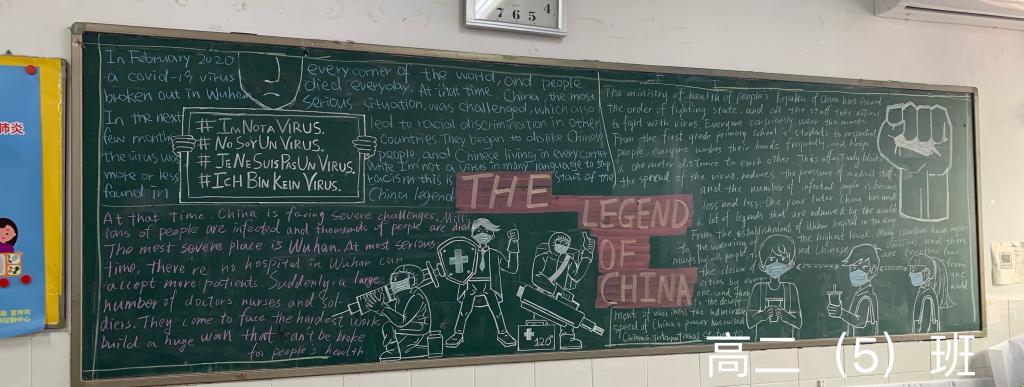 7 6 5 4
肺炎
In February 2020
a covid-19 virus
broken out in Wuhan
In the next
few months
the virus was
more or less
found in
every corner of the world, and people
died everyday. At that time, China, the most
serious situation, was challenged, which even
led to racial discrimination in other
countries. They began to dislike Chinese
people and Chinese living in every corner
write Im not a virus in many language to stop
racism this is start of the
China legend
# IM NOT A VIRUS.
# NO SOY UN VIRUS.
# JE NE SUIS PAS UN VIRUS.
# ICH BIN KEIN VIRUS.
THE
LEGEND
OF
CHINA
At that time. China is facing severe challenges. Mill-
ions of people are infected and thousands of people are died
The most severe place is Wuhan. At most serious
time, there're no hospital in Wuhan can
accept more patients. Suddenly a large
number of doctors. nurses and sol-
diers. They come to face the hardest work
build a huge wall that can't be broke
for people's health.
120
The ministry of health of people's Republic of China has issued
the order of fighting State, and all the staff
to fight with virus. Everyone consciously wear masks
From the first grade primary school's students to
people everyone washes their hands frequently, and keep
a one meter distance to each other. This effectively block
the spread of the virus. reduces the pressure of medical staff
and the number of infected people is become
less and less. One year later China has made
a lot of legends that are admired by the world
From the establishment of Wuhan hospital in ten days
to the wearing of the highest level. Many countries have
masks by all people Chinese
the closure
cities by
the
speed of China's power has raised
China's international
高二（5）班